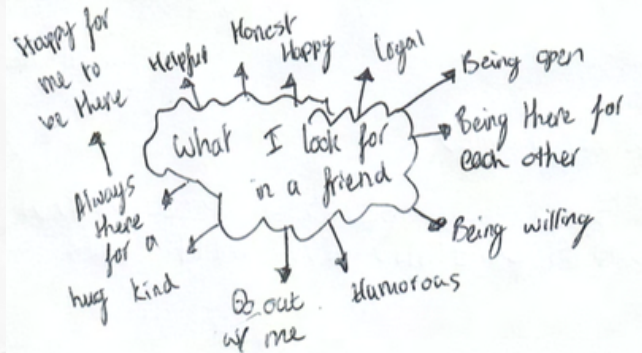 What I look for
in a friend
Happy for
me to
be there
Helpful
Honest
Happy
Loyal
Being open
Being there for
each other
Being willing
Humorous
Go out
w/ me
kind
Always
there
for a
hug